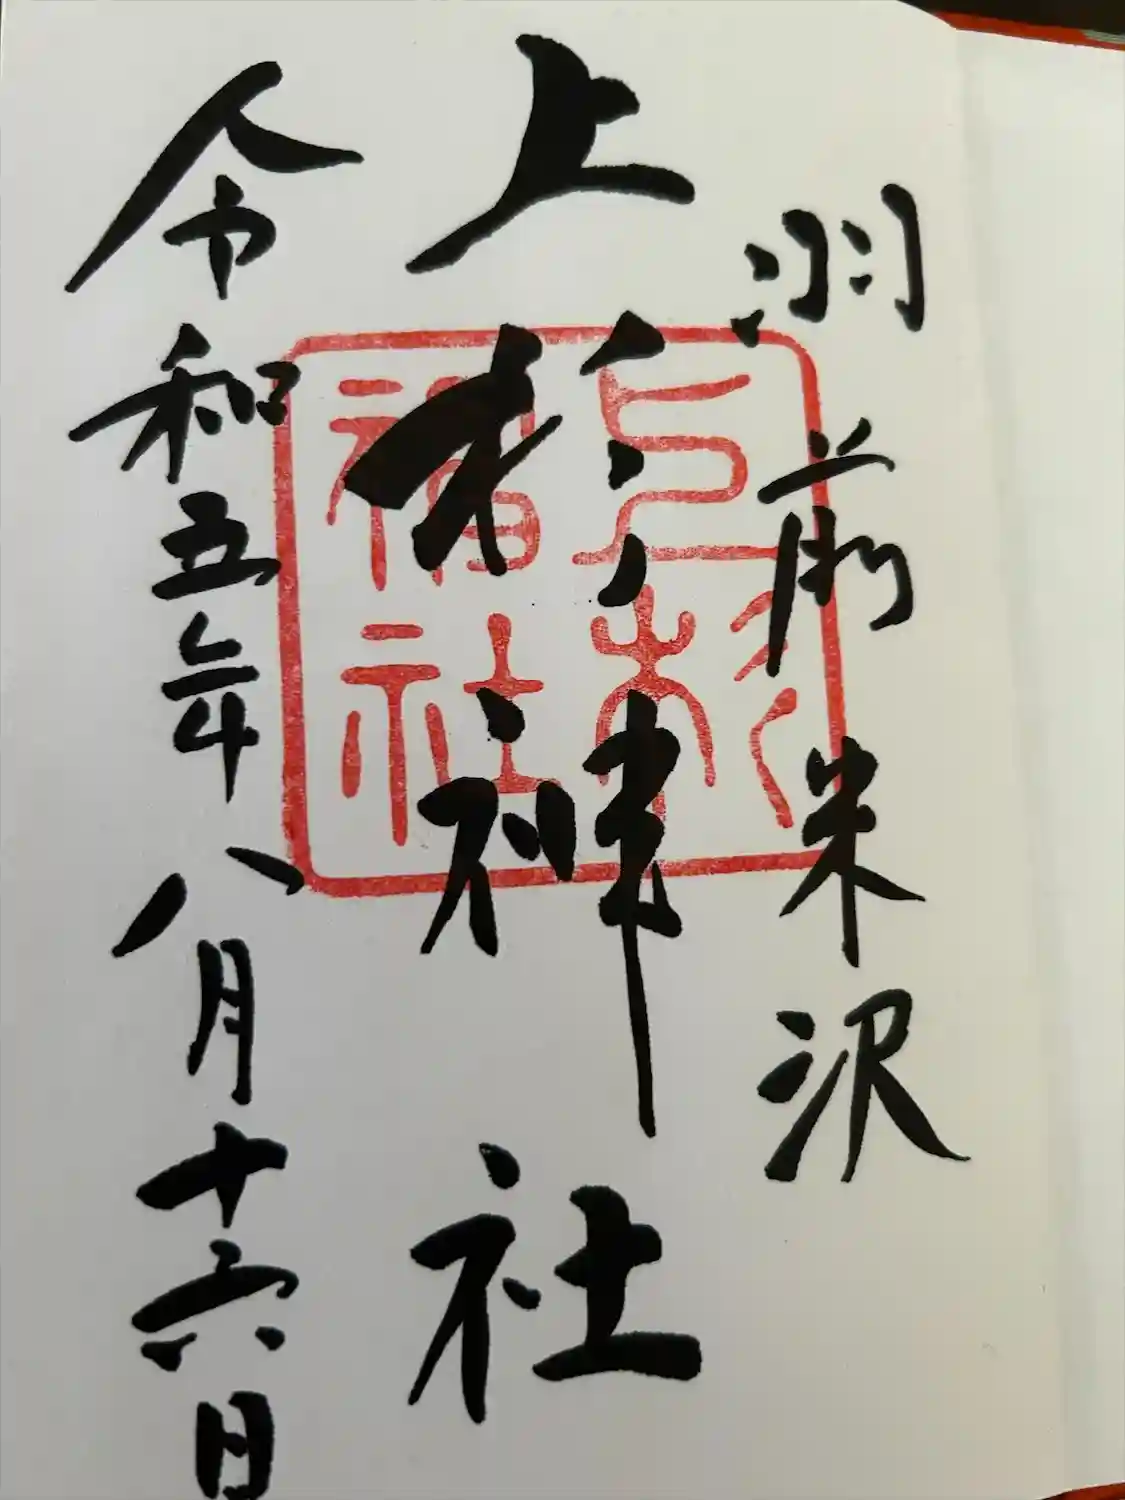 羽前米沢
上杉神社
上杉神社
令和五年八月十六日